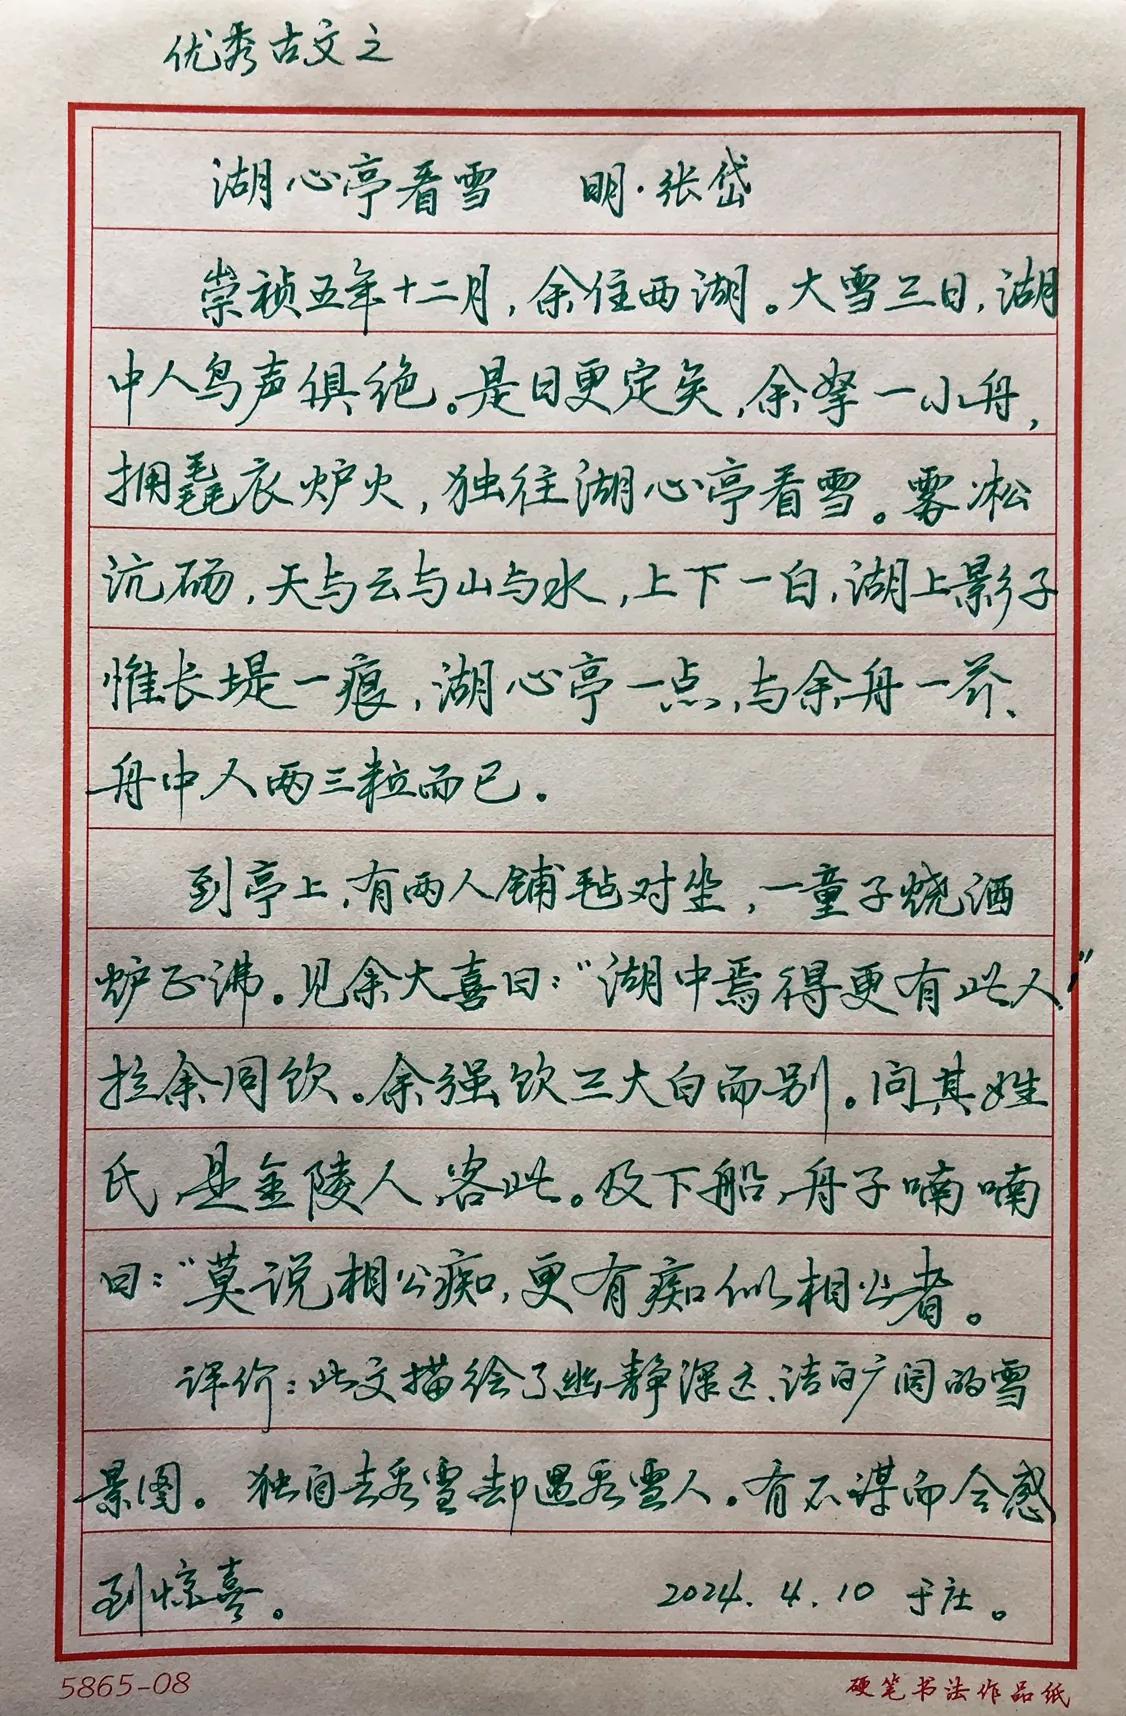 优秀古文之
湖心亭看雪 明·张岱
崇祯五年十二月，余住西湖。大雪三日，湖
中人鸟声俱绝。是日更定矣，余拏一小舟，
拥毳衣炉火，独往湖心亭看雪。雾凇
沆砀，天与云与山与水，上下一白，湖上影子
惟长堤一痕，湖心亭一点，与余舟一芥、
舟中人两三粒而已。
到亭上，有两人铺毡对坐，一童子烧酒
炉正沸。见余大喜曰：“湖中焉得更有此人！”
拉余同饮。余强饮三大白而别。问其姓
氏，是金陵人，客此。及下船，舟子喃喃
曰：“莫说相公痴，更有痴似相公者。
评价：此文描绘了幽静深远、洁白广阔的雪
景图。独自去看雪却遇看雪人。有不谋而合感
到惊喜。 2024.4.10 于社。
5865-08 硬笔书法作品纸